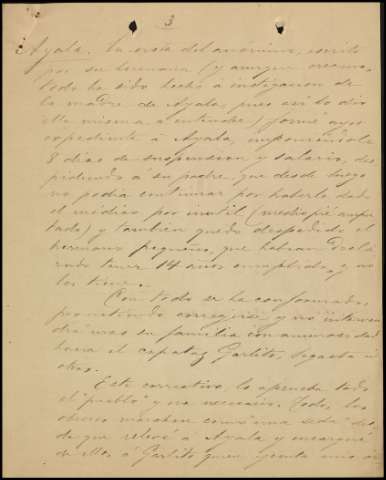 3
Ayala. En vista del anónimo, escrito
por su hermana (y aunque creemos
todo ha sido hecho a instigacion de
la madre de Ayala, pues así lo dió
ella misma a entender) formé ayer
expediente á Ayala, imponiéndole
8 dias de suspension y salario, des
pidiendo á su padre que desde luego
no podia continuar por haberle dado
el médico por inutil (medio pié ampu
tado) y tambien queda despedido el
hermano pequeño, que habian decla
rado tener 14 años cumplidos, y no
los tiene.
Con todo se ha conformado,
prometiendo corregirse y no interven
drá mas su familia con animosidad
hacia el capataz Garlito,
otros.
Este correctivo, lo aprueba todo
el "pueblo" y era necesario. Todos los
obreros marchan como "una seda" des
de que relevé a Ayala y encargué
de ellos á Garlito quien